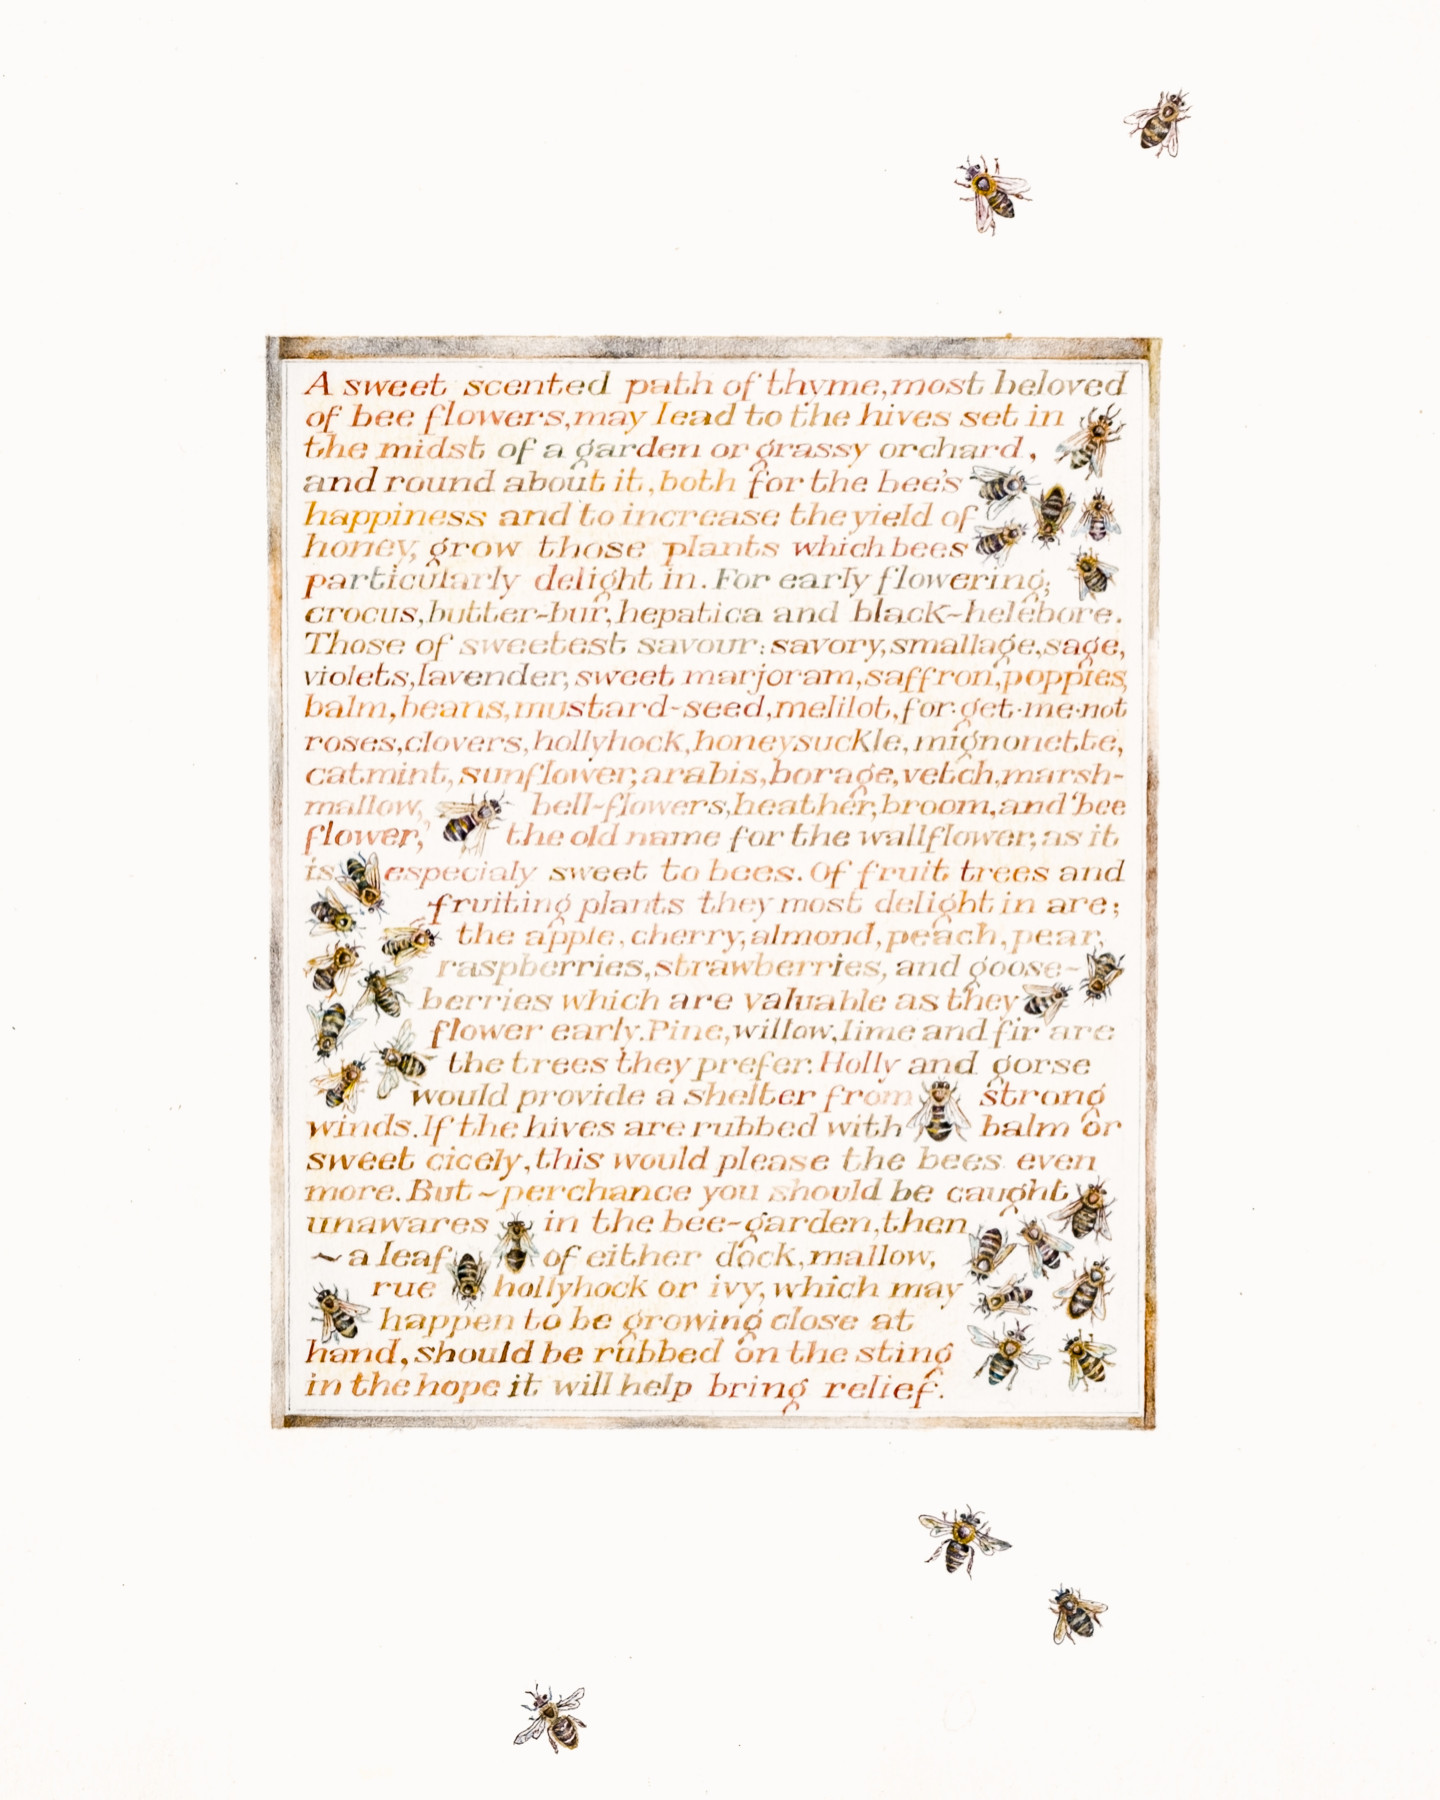 A sweet scented path of thyme, most beloved
of bee flowers, may lead to the hives set in
the midst of a garden or grassy orchard,
and round about it, both for the bee's
happiness and to increase the yield of
honey, grow those plants which bees
particularly delight in. For early flowering;
crocus, butter-bur, hepatica and black-helebore.
Those of sweetest savour: savory, smallage, sage,
violets, lavender, sweet marjoram, saffron, poppies,
balm, beans, mustard-seed, melilot, for·get·me·not
roses, clovers, hollyhock, honeysuckle, mignonette,
catmint, sunflower, arabis, borage, vetch, marsh-
mallow, bell-flowers, heather, broom, and 'bee
flower,' the old name for the wallflower, as it
is especialy sweet to bees. Of fruit trees and
fruiting plants they most delight in are;
the apple, cherry, almond, peach, pear,
raspberries, strawberries, and goose-
berries which are valuable as they
flower early. Pine, willow, lime and fir are
the trees they prefer. Holly and gorse
would provide a shelter from strong
winds. If the hives are rubbed with balm or
sweet cicely, this would please the bees even
more. But ~ perchance you should be caught
unawares in the bee-garden, then
~ a leaf of either dock, mallow,
rue hollyhock or ivy, which may
happen to be growing close at
hand, should be rubbed on the sting
in the hope it will help bring relief.